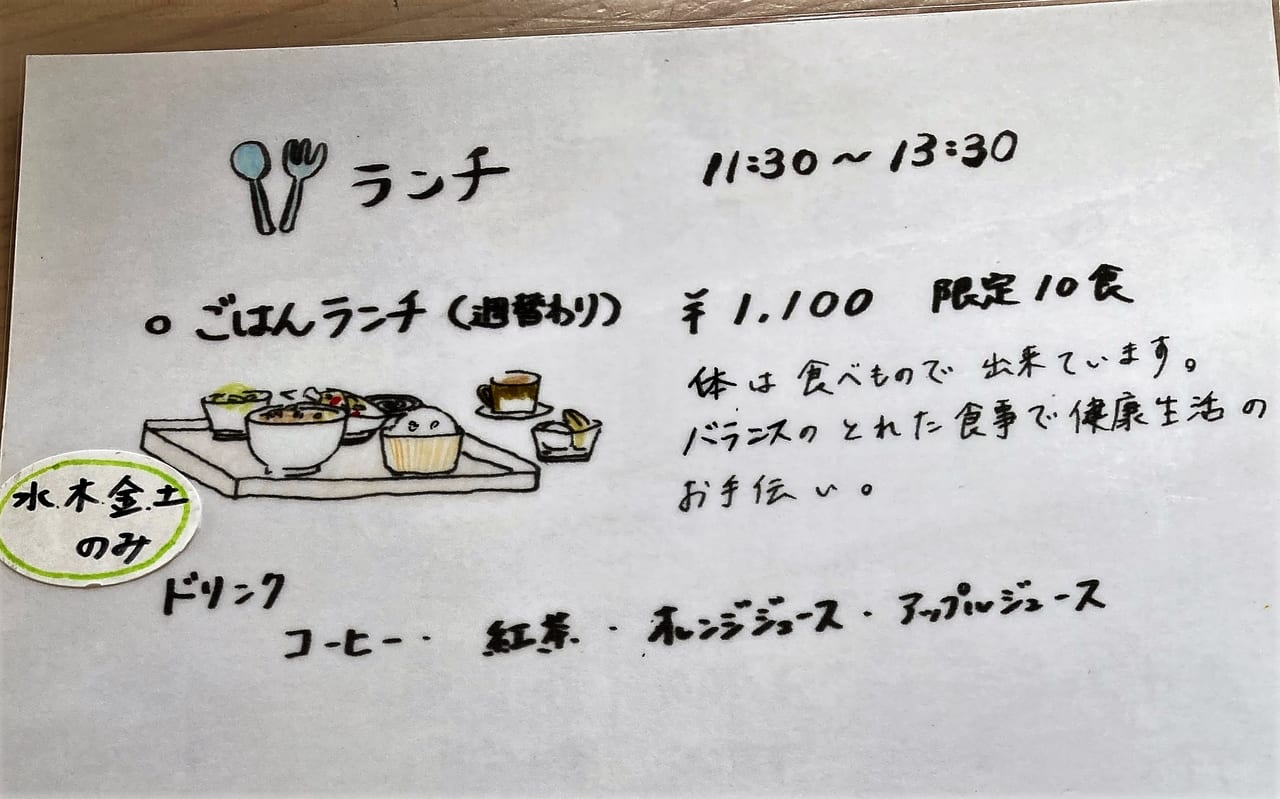 ランチ 11:30～13:30
○ ごはんランチ（週替わり） ¥1.100 限定10食
体は食べもので出来ています。
バランスのとれた食事で健康生活の
お手伝い。
水.木.金.土
のみ
ドリンク
コーヒー・紅茶・オレンジジュース・アップルジュース